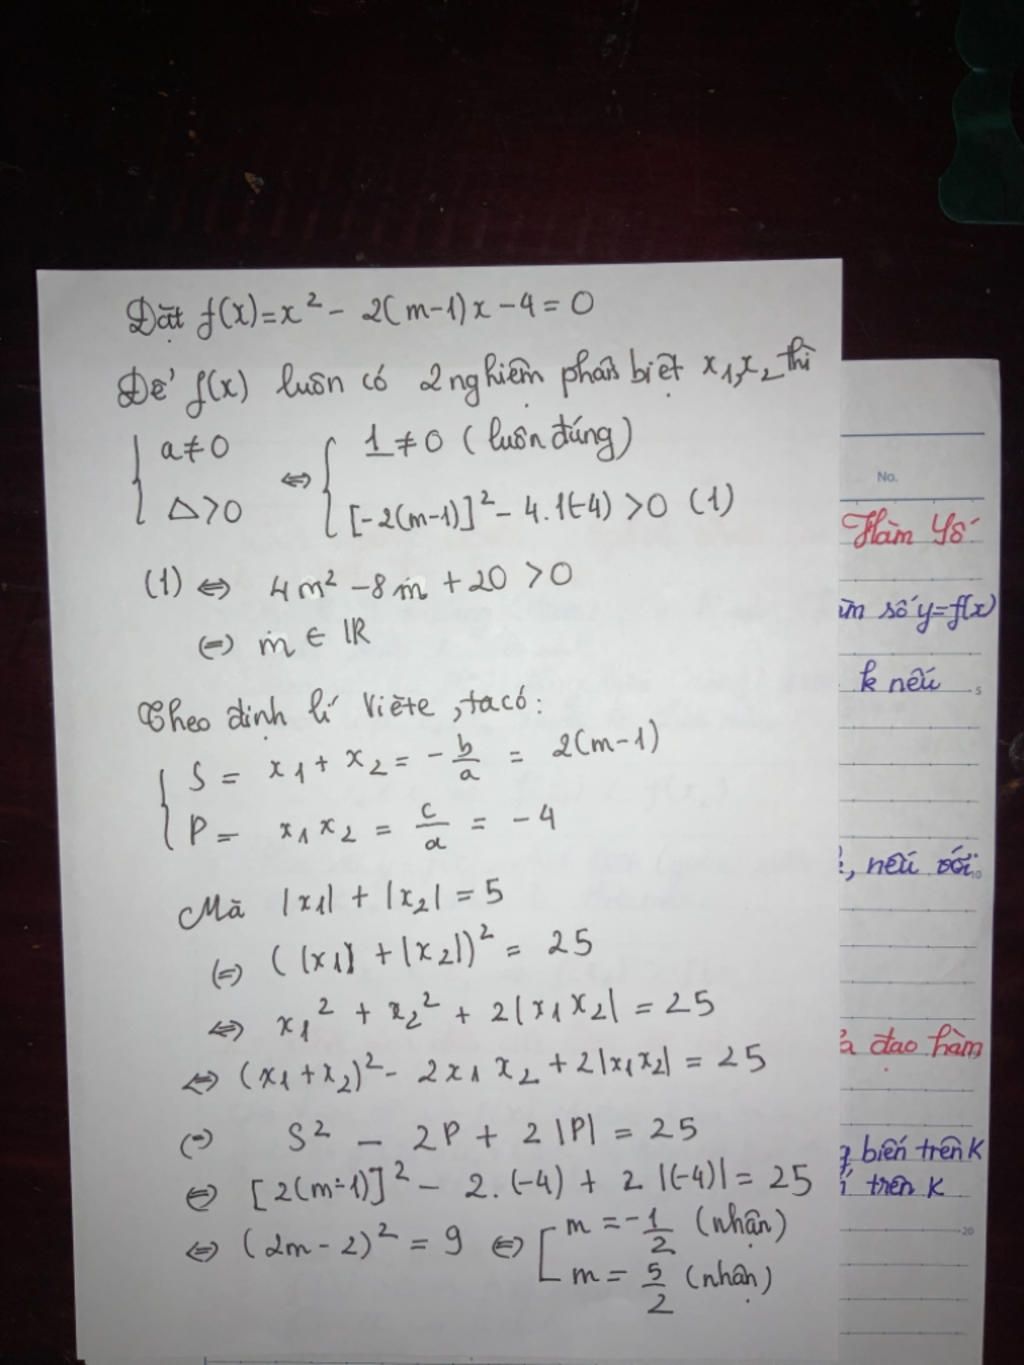 Đặt f(x)=x² - 2(m-1)x - 4 = 0
Để f(x) luôn có 2 nghiệm phân biệt x₁,x₂ thì
{ a≠0 ⇔ { 1≠0 (luôn đúng)
{ Δ>0 { [-2(m-1)]² - 4.1(-4) >0 (1)
(1) ⇔ 4m² - 8m + 20 >0
⇔ m ∈ ℝ
Theo định lí Viète, ta có:
{ S = x₁ + x₂ = -b/a = 2(m-1)
{ P = x₁x₂ = c/a = -4
Mà |x₁| + |x₂| = 5
⇔ (|x₁| + |x₂|)² = 25
⇔ x₁² + x₂² + 2|x₁x₂| = 25
⇔ (x₁+x₂)² - 2x₁x₂ + 2|x₁x₂| = 25
⇔ S² - 2P + 2|P| = 25
⇔ [2(m-1)]² - 2.(-4) + 2|(-4)| = 25
⇔ (2m-2)² = 9 ⇔ [ m = -1/2 (nhận)
[ m = 5/2 (nhận)
No.
Hàm số
àm số y=f(x)
k nếu
5
, nếu với
10
đạo hàm
g biến trên K
trên K
20